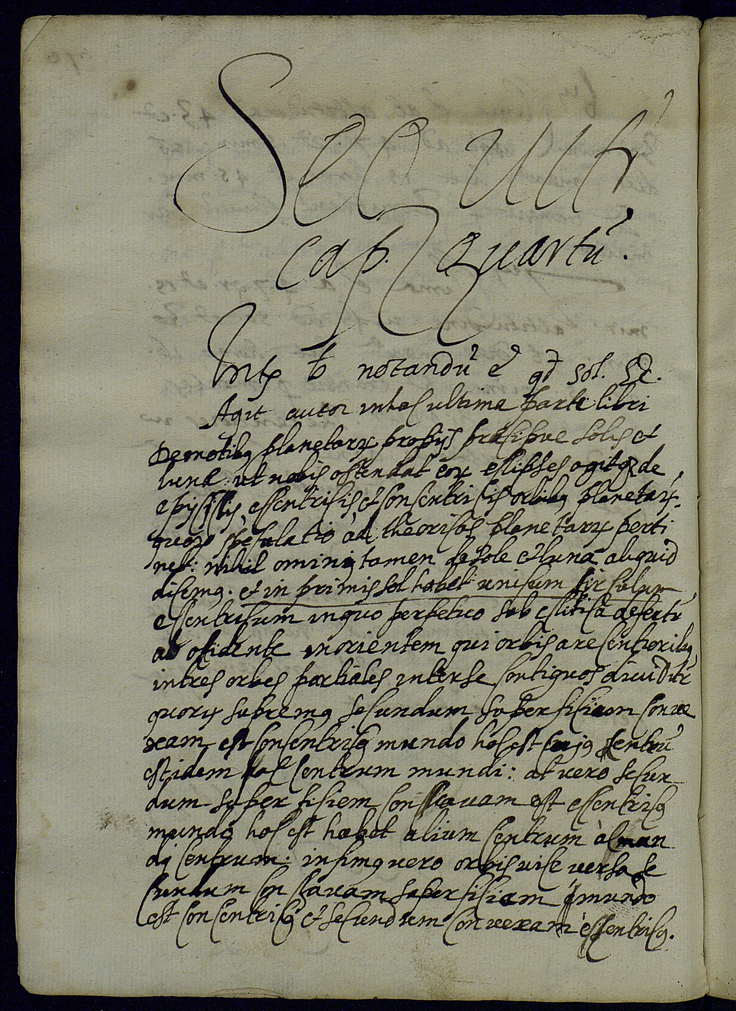 Sequitr
cap. Quartũ.
notandũ ẽ qd sol. &c.
Agit autor in hac ultima parte libri
De motibq planetarꝝ propijs presipue solis et
lunæ. ut nobis ostendat eoꝝ eslipses agitqꝫ de
episislis essentrisis et consentrisis orbibq planetarꝝ.
quorꝝ spesulatio ad theorisas planetarꝝ perti
net: nihil ominq tamen de sole et luna aliquid
disemq. et in primis sol habet unisum sirsulum
essentrisum in quo perpetuo sub eslitisa defertr
ab osidente in orientem qui orbis a resentioribq
in tres orbes partiales inter se contiguos dividitr
quorꝝ supremq secundum supersisiem conve
xam est consentrisq mundo hoc est cujq sentrũ
est idem hac centrum mundi: at vero secun
dum supersisiem concavam est essentrisq
mundo hoc est habet alium centrum à mun
di centrum: infimq vero orbis vise versa se
cundum concavam supersisiem mundo
est consentrisq et secundum convexam essentrisq.